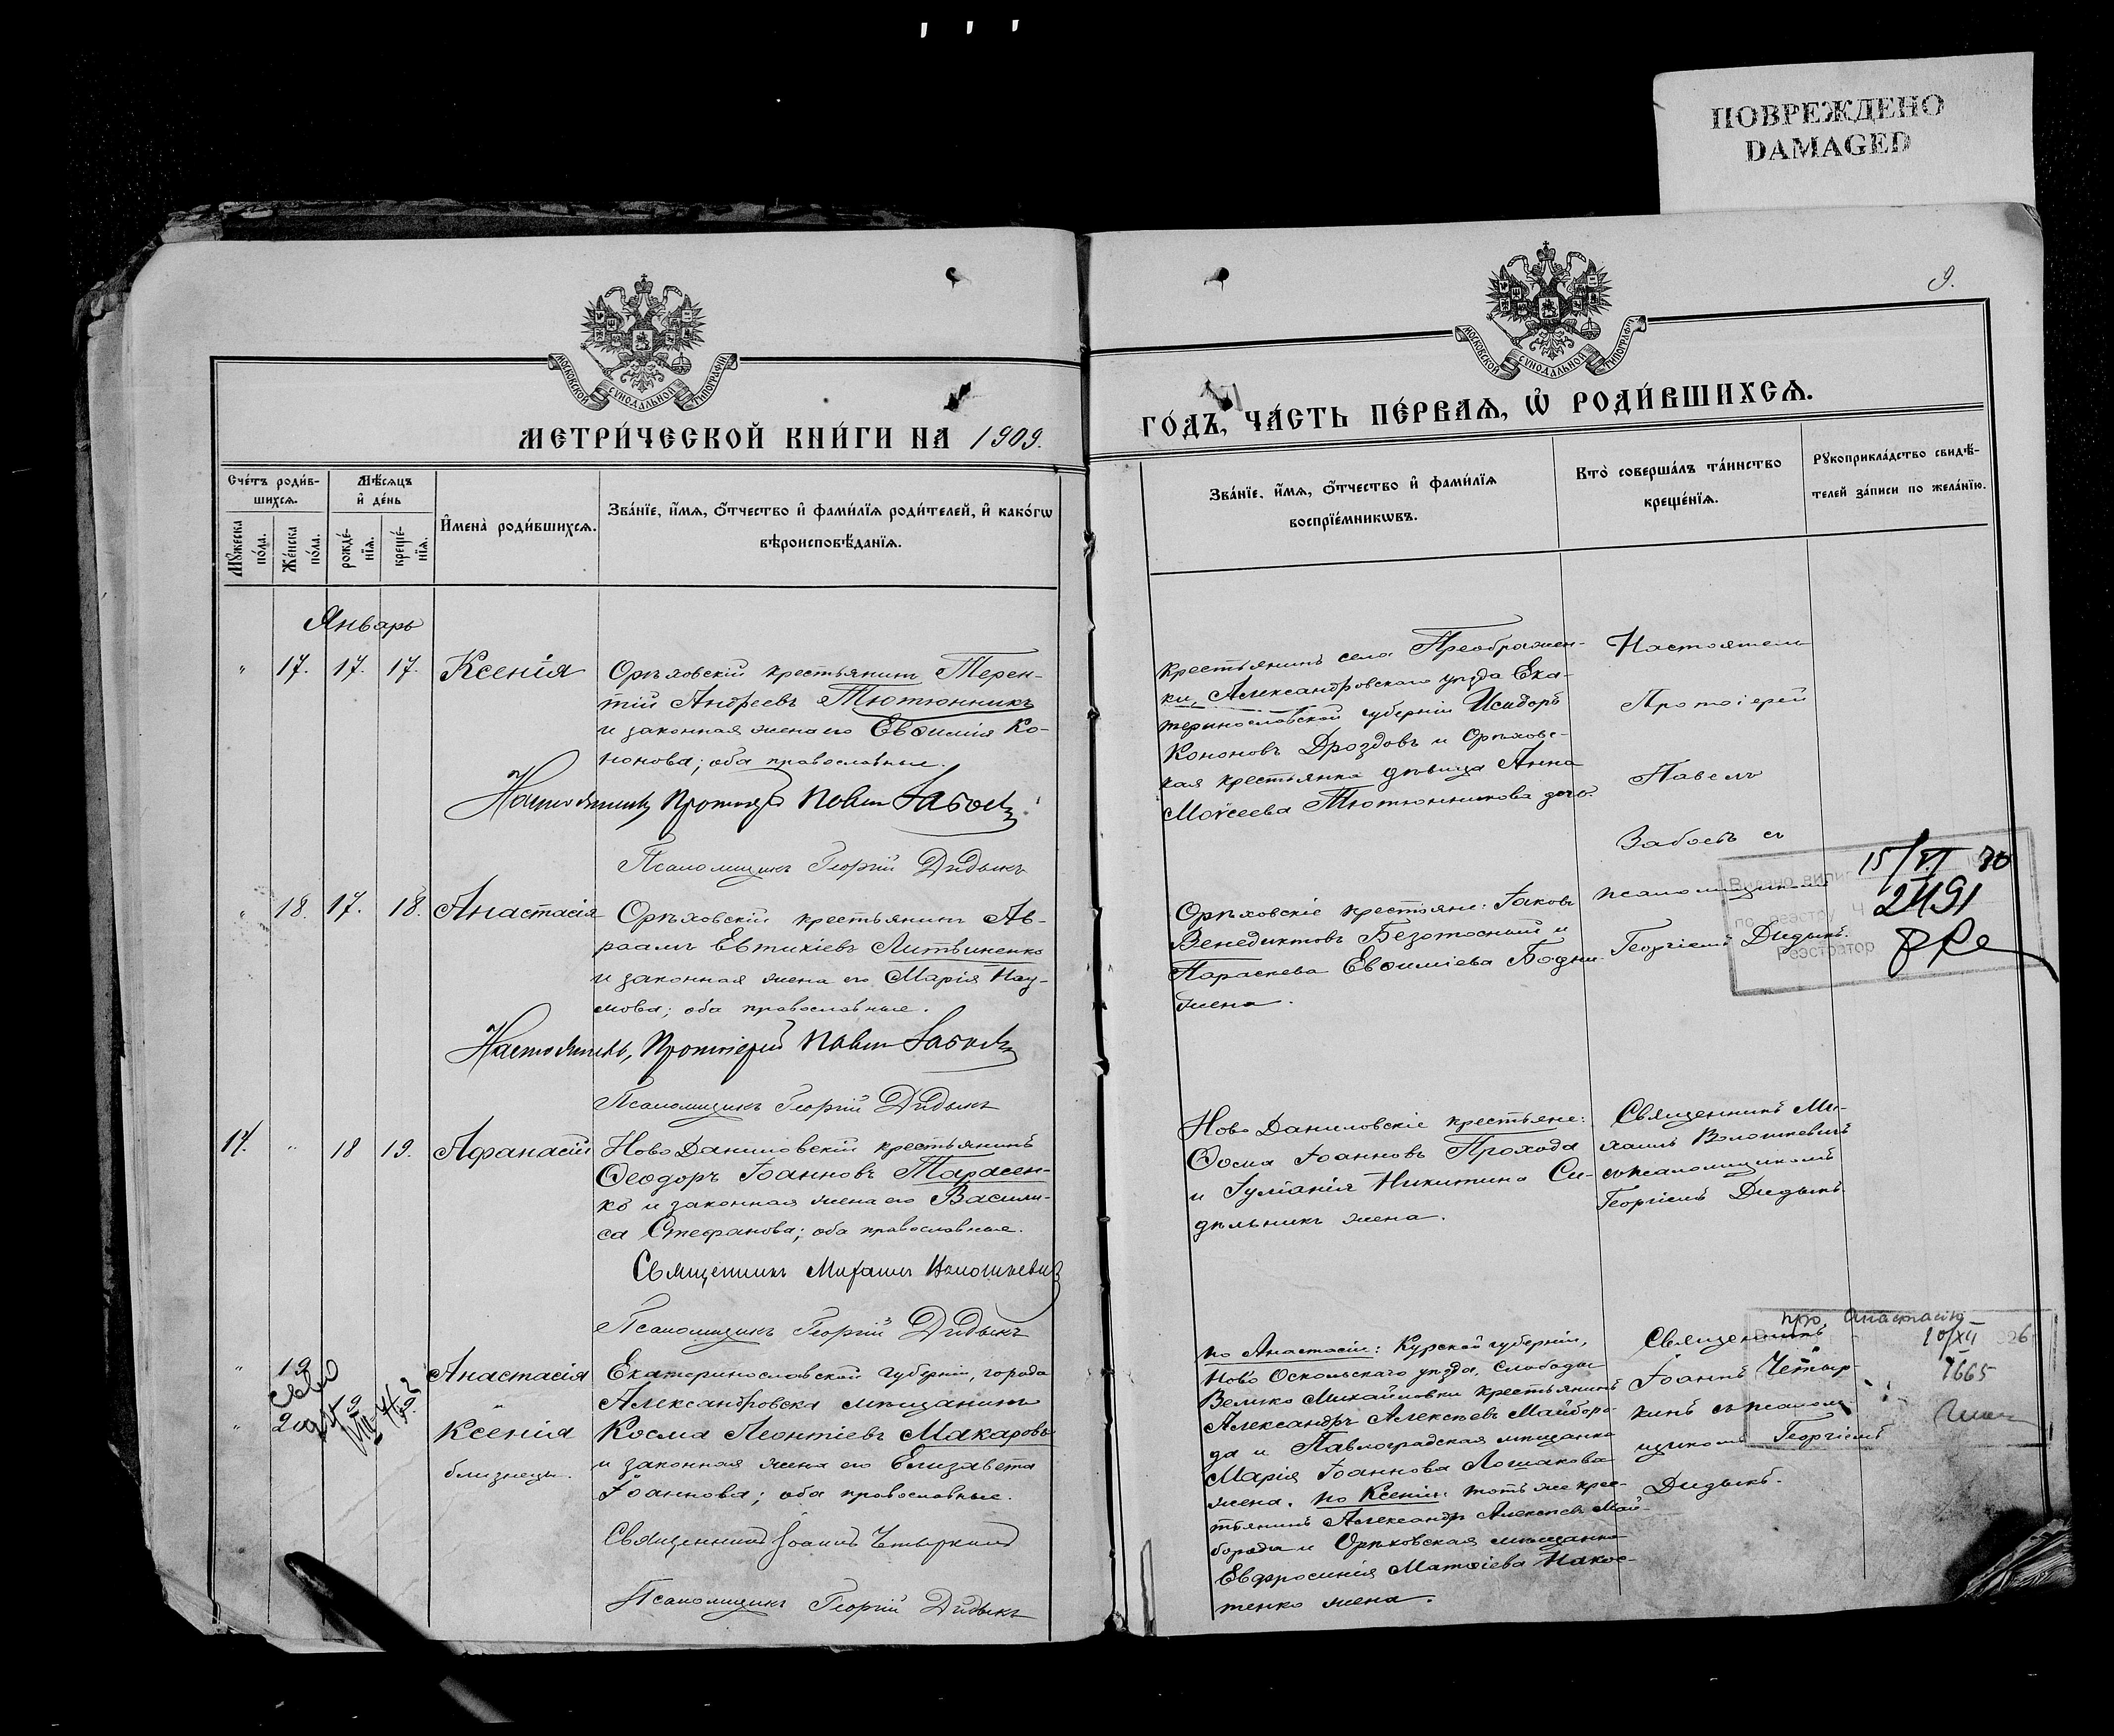 ПОВРЕЖДЕНО
DAMAGED
9.
МОСКОВСКОЙ СУНОДАЛЬНОЙ ТИПОГРАФІИ
МОСКОВСКОЙ СУНОДАЛЬНОЙ ТИПОГРАФІИ
МЕТРИ́ЧЕСКОЙ КНИ́ГИ НА 1909.
ГО́ДЪ, ЧА́СТЬ ПЕ́РВАѦ, Ѡ҆ РОДИ́ВШИХСѦ.
Сче́тъ роди́в-
шихсѧ.
Мꙋ́жеска по́ла.
Же́нска по́ла.
Мѣ́сѧцъ
и҆ де́нь
рожде́-
нїѧ.
креще́-
нїѧ.
И҆мена̀ роди́вшихсѧ.
Зва́нїе, и҆́мѧ, ѻ҆́тчество и҆ фами́лїѧ роди́телей, и҆ како́гѡ
вѣроисповѣ́данїѧ.
Зва́нїе, и҆́мѧ, ѻ҆́тчество и҆ фами́лїѧ
воспрїе́мникѡвъ.
Кто̀ соверша́лъ та́инство
креще́нїѧ.
Рꙋкоприкла́дство свидѣ́-
телей за́писи по жела́нїю.
Январь
" 17. 17. 17. Ксенія
Орѣховскій крестьянинъ Терен-
тій Андреевъ Тютюнникъ
и законная жена его Евѳимія Ко-
нонова; оба православные.
Настоятель Протоіерей Павелъ Забоевъ
Псаломщикъ Георгій Дидыкъ
крестьянинъ села Преображен-
ки, Александровскаго уѣзда Ека-
теринославской губерніи Исидоръ
Кононовъ Дроздовъ и Орѣховс-
кая крестьянка дѣвица Анна
Моѵсеева Тютюнникова дочь.
Настоятель
Протоіерей
Павелъ
Забоевъ съ
псаломщикомъ
Георгіемъ Дидыкъ.
15/VI 30
2491
Реэстратор
" 18. 17. 18. Анастасія
Орѣховскій крестьянинъ Ав-
раамъ Евтихіевъ Литвиненко
и законная жена его Марія Нау-
мова; оба православные.
Настоятель, Протоіерей Павелъ Забоевъ
Псаломщикъ Георгій Дидыкъ
Орѣховскіе крестьяне: Іаковъ
Венедиктовъ Безотосный и
Параскева Евѳиміева
жена.
17. " 18 19. Афанасій
Ново Даниловскій крестьянинъ
Ѳеодоръ Іоанновъ Тарасен-
ко и законная жена его Васили-
са Стефанова; оба православные.
Священникъ Михаилъ Волошкевичъ
Псаломщикъ Георгій Дидыкъ
Ново Даниловскіе крестьяне:
Ѳома Іоанновъ Прохода
и Іуліанія Никитина Си-
дѣльникъ жена.
Священникъ Ми-
хаилъ Волошкевичъ
съ псаломщикомъ
Георгіемъ Дидыкъ.
" 19 Анастасія
" 20 Ксенія
близнецы.
Екатеринославской губерніи, города
Александровска мѣщанинъ
Косма Леонтіевъ Макаровъ
и законная жена его Елизавета
Іоаннова; оба православные.
Священникъ Іоаннъ Четыркинъ
Псаломщикъ Георгій Дидыкъ
по Анастасіи: Курской губерніи,
Ново Оскольскаго уѣзда, слободы
Велико Михайловки крестьянинъ
Александръ Алексѣевъ Майборо-
да и Павлоградская мѣщанка
Марія Іоаннова Лошакова
жена. по Ксеніи: тотъ же крес-
тьянинъ Александръ Алексѣевъ Май-
борода и Орѣховская мѣщанка
Евфросинія Матѳіева Накос-
тенко жена.
Священникъ
Іоаннъ Четыр-
кинъ съ псалом-
щикомъ Георгіемъ
Дидыкъ.
про Анастасію
10/XII 926
7665